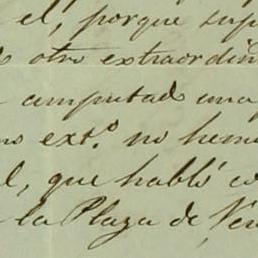 el, porque sup
otro extraordin
amputado una
ext.º no hemo
el, que habló co
la Plaza de Ven